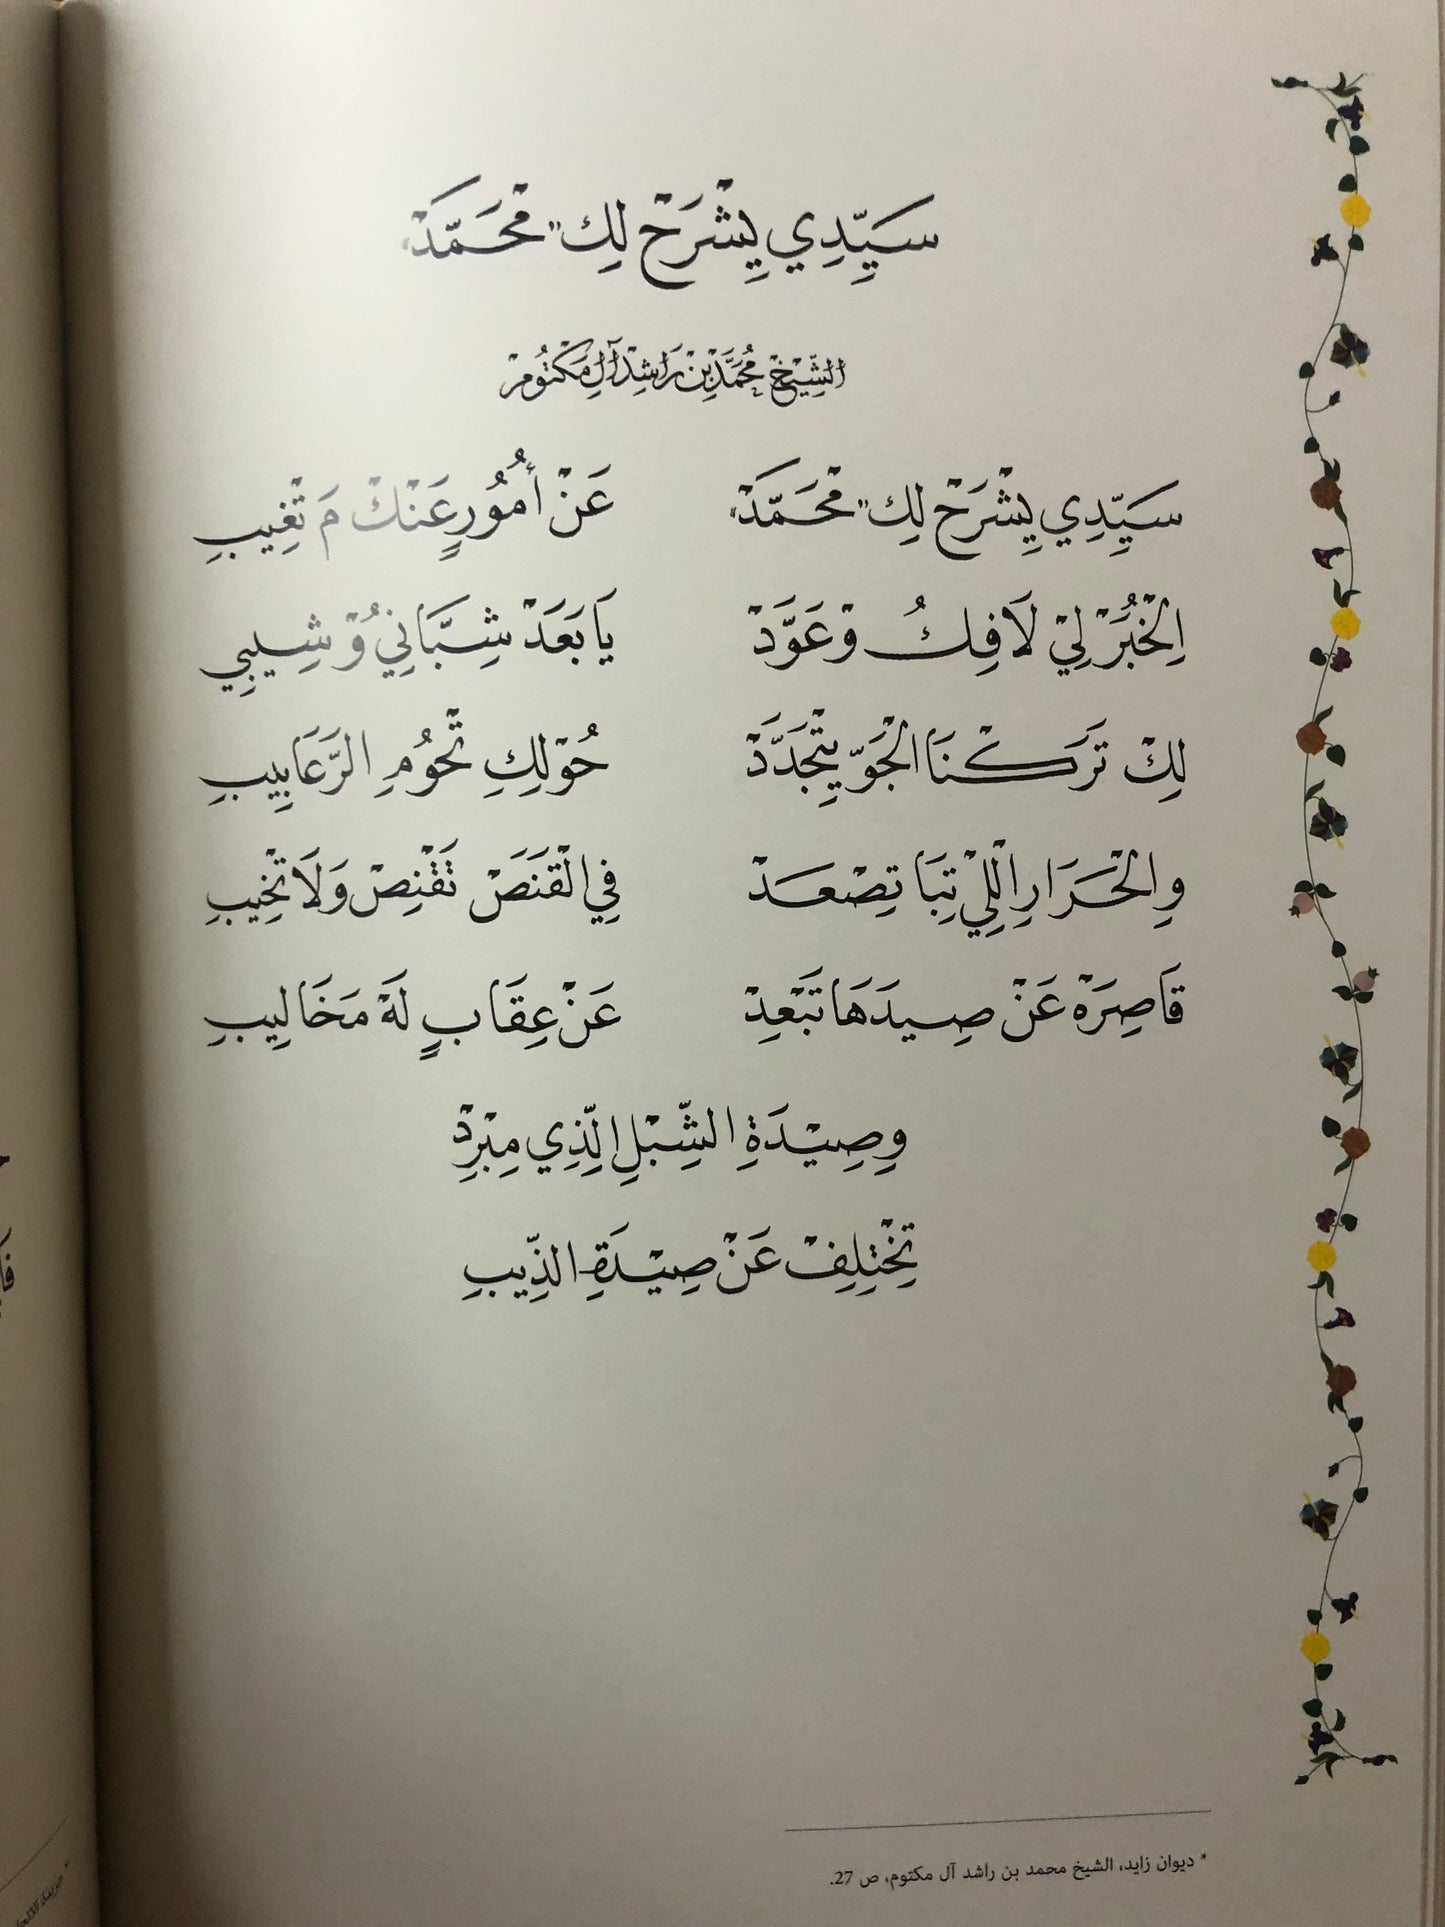 سَيِّدِي يِشْرَحْ لِك "مْحَمَّدْ"
الشَّيْخ مُحَمَّد بْنْ رَاشِدْ آل مَكْتُومْ
سَيِّدِي يِشْرَحْ لِك "مْحَمَّدْ" عَنْ أُمُورٍ عَنْكْ مَ تْغِيبِ
اِلْخْبَرْ لِيْ لَا فِكُ وْعَوَّدْ يَا بَعَدْ شِبَّانِيُ وْشِيبِي
لِكْ تَرَكْنَا الْجَوّ يِتْجَدَّدْ حُوْلِكِ تْحُومِ الرَّعَابِيبِ
وِالْحْرَارِ اللِّيْ تِبَا تِصْعَدْ فِي الْقَنَصْ تَقْنِصْ وَلَا تْخِيبِ
قَاصِرَهْ عَنْ صِيدَهَا تَبْعِدْ عَنْ عِقَابٍ لَهْ مَخَالِيبِ
وِصِيْدَةِ الشِّبْلِ الِّذِي مِبْرِدْ
تِخْتِلِفْ عَنْ صِيْدَةِ الذِّيبِ
* ديوان زايد، الشيخ محمد بن راشد آل مكتوم، ص 27.